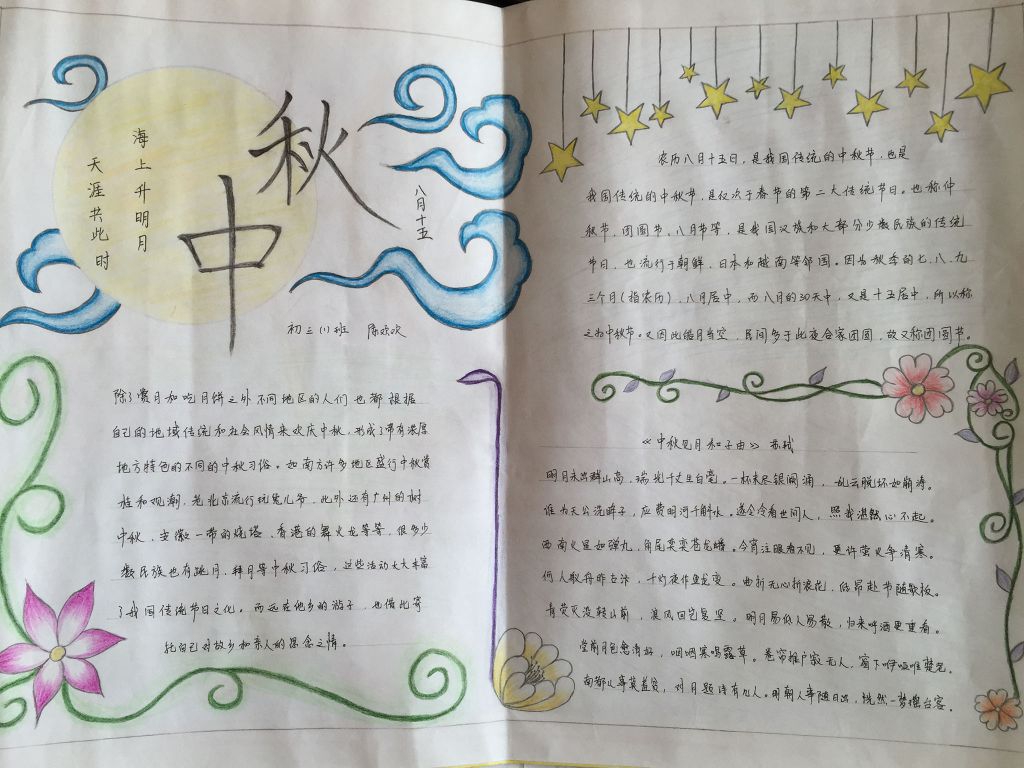 海上升明月
天涯共此时
中秋
八月十五
初三(1)班 陈欢欢
除了赏月和吃月饼之外不同地区的人们也都根据
自己的地域传统和社会风情来欢庆中秋,形成了带有浓厚
地方特色的不同的中秋习俗。如南方许多地区盛行中秋赏
桂和观潮,老北京流行玩兔儿爷,此外还有广州的树
中秋,安徽一带的烧塔、香港的舞火龙等等,很多少
数民族也有跳月、拜月等中秋习俗,这些活动大大丰富
了我国传统节日文化。而远在他乡的游子,也借此寄
托自己对故乡和亲人的思念之情。
农历八月十五日,是我国传统的中秋节,也是
我国传统的中秋节,是仅次于春节的第二大传统节日。也称仲
秋节,团圆节、八月节等,是我国汉族和大部分少数民族的传统
节日,也流行于朝鲜,日本和越南等邻国。因为秋季的七、八、九
三个月(指农历),八月居中,而八月的30天中,又是十五居中,所以称
之为中秋节。又因此皓月当空,民间多于此夜合家团圆,故又称团圆节。
《中秋见月和子由》 苏轼
明月未出群山高,瑞光千丈生白毫。一杯未尽银阙涌,乱云脱坏如崩涛。
谁为天公洗眸子,应费明河千斛水。遂令冷看世间人,照我湛然心不起。
西南火星如弹丸,角尾奕奕苍龙蟠。今宵注眼看不见,更许萤火争清寒。
何人舣舟昨古汴,千灯夜作鱼龙变。曲折无心逐浪花,低昂赴节随歌板。
青荧灭没转山前,浪风回岂复坚。明月易低人易散,归来呼酒更重看。
堂前月色愈清好,咽咽寒螀鸣露草。卷帘推户寂无人,窗下咿哑唯楚老。
南都从事莫羞贫,对月题诗有几人。明朝人事随日出,恍然一梦瑶台客。